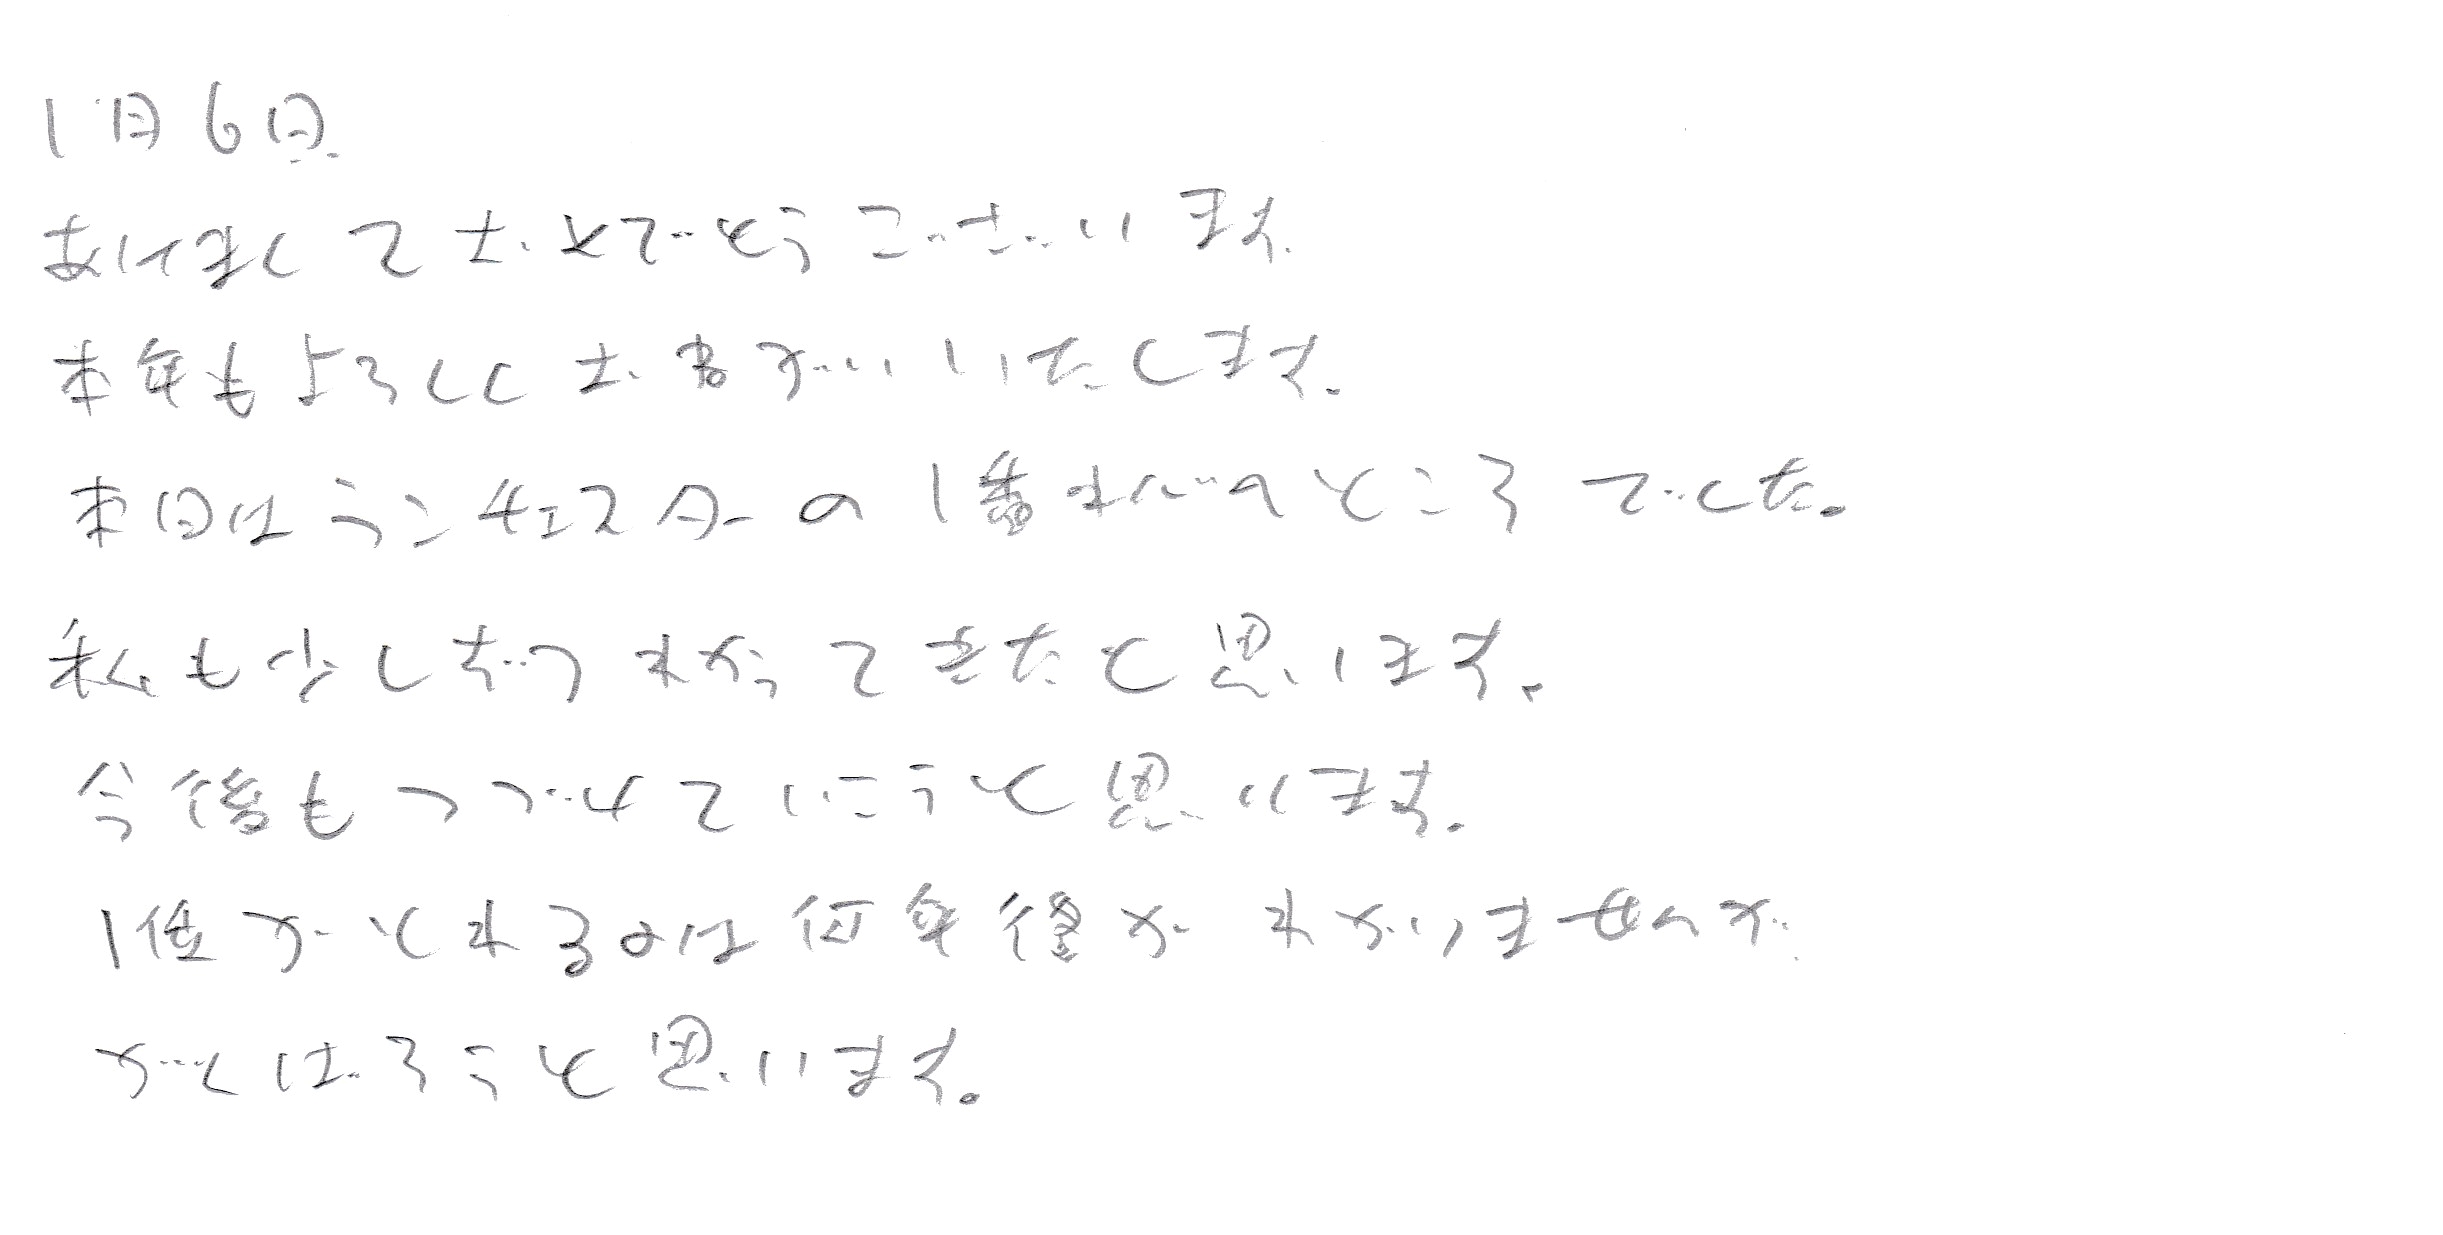 1月6日
あけましておめでとうございます
本年もよろしくお願いいたします。
本日は の1番 のところでした。
私も少しずつわかってきたと思います。
今後もつづけていこうと思います。
1位がとれるのは何年後かわかりませんが
がんばろうと思います。